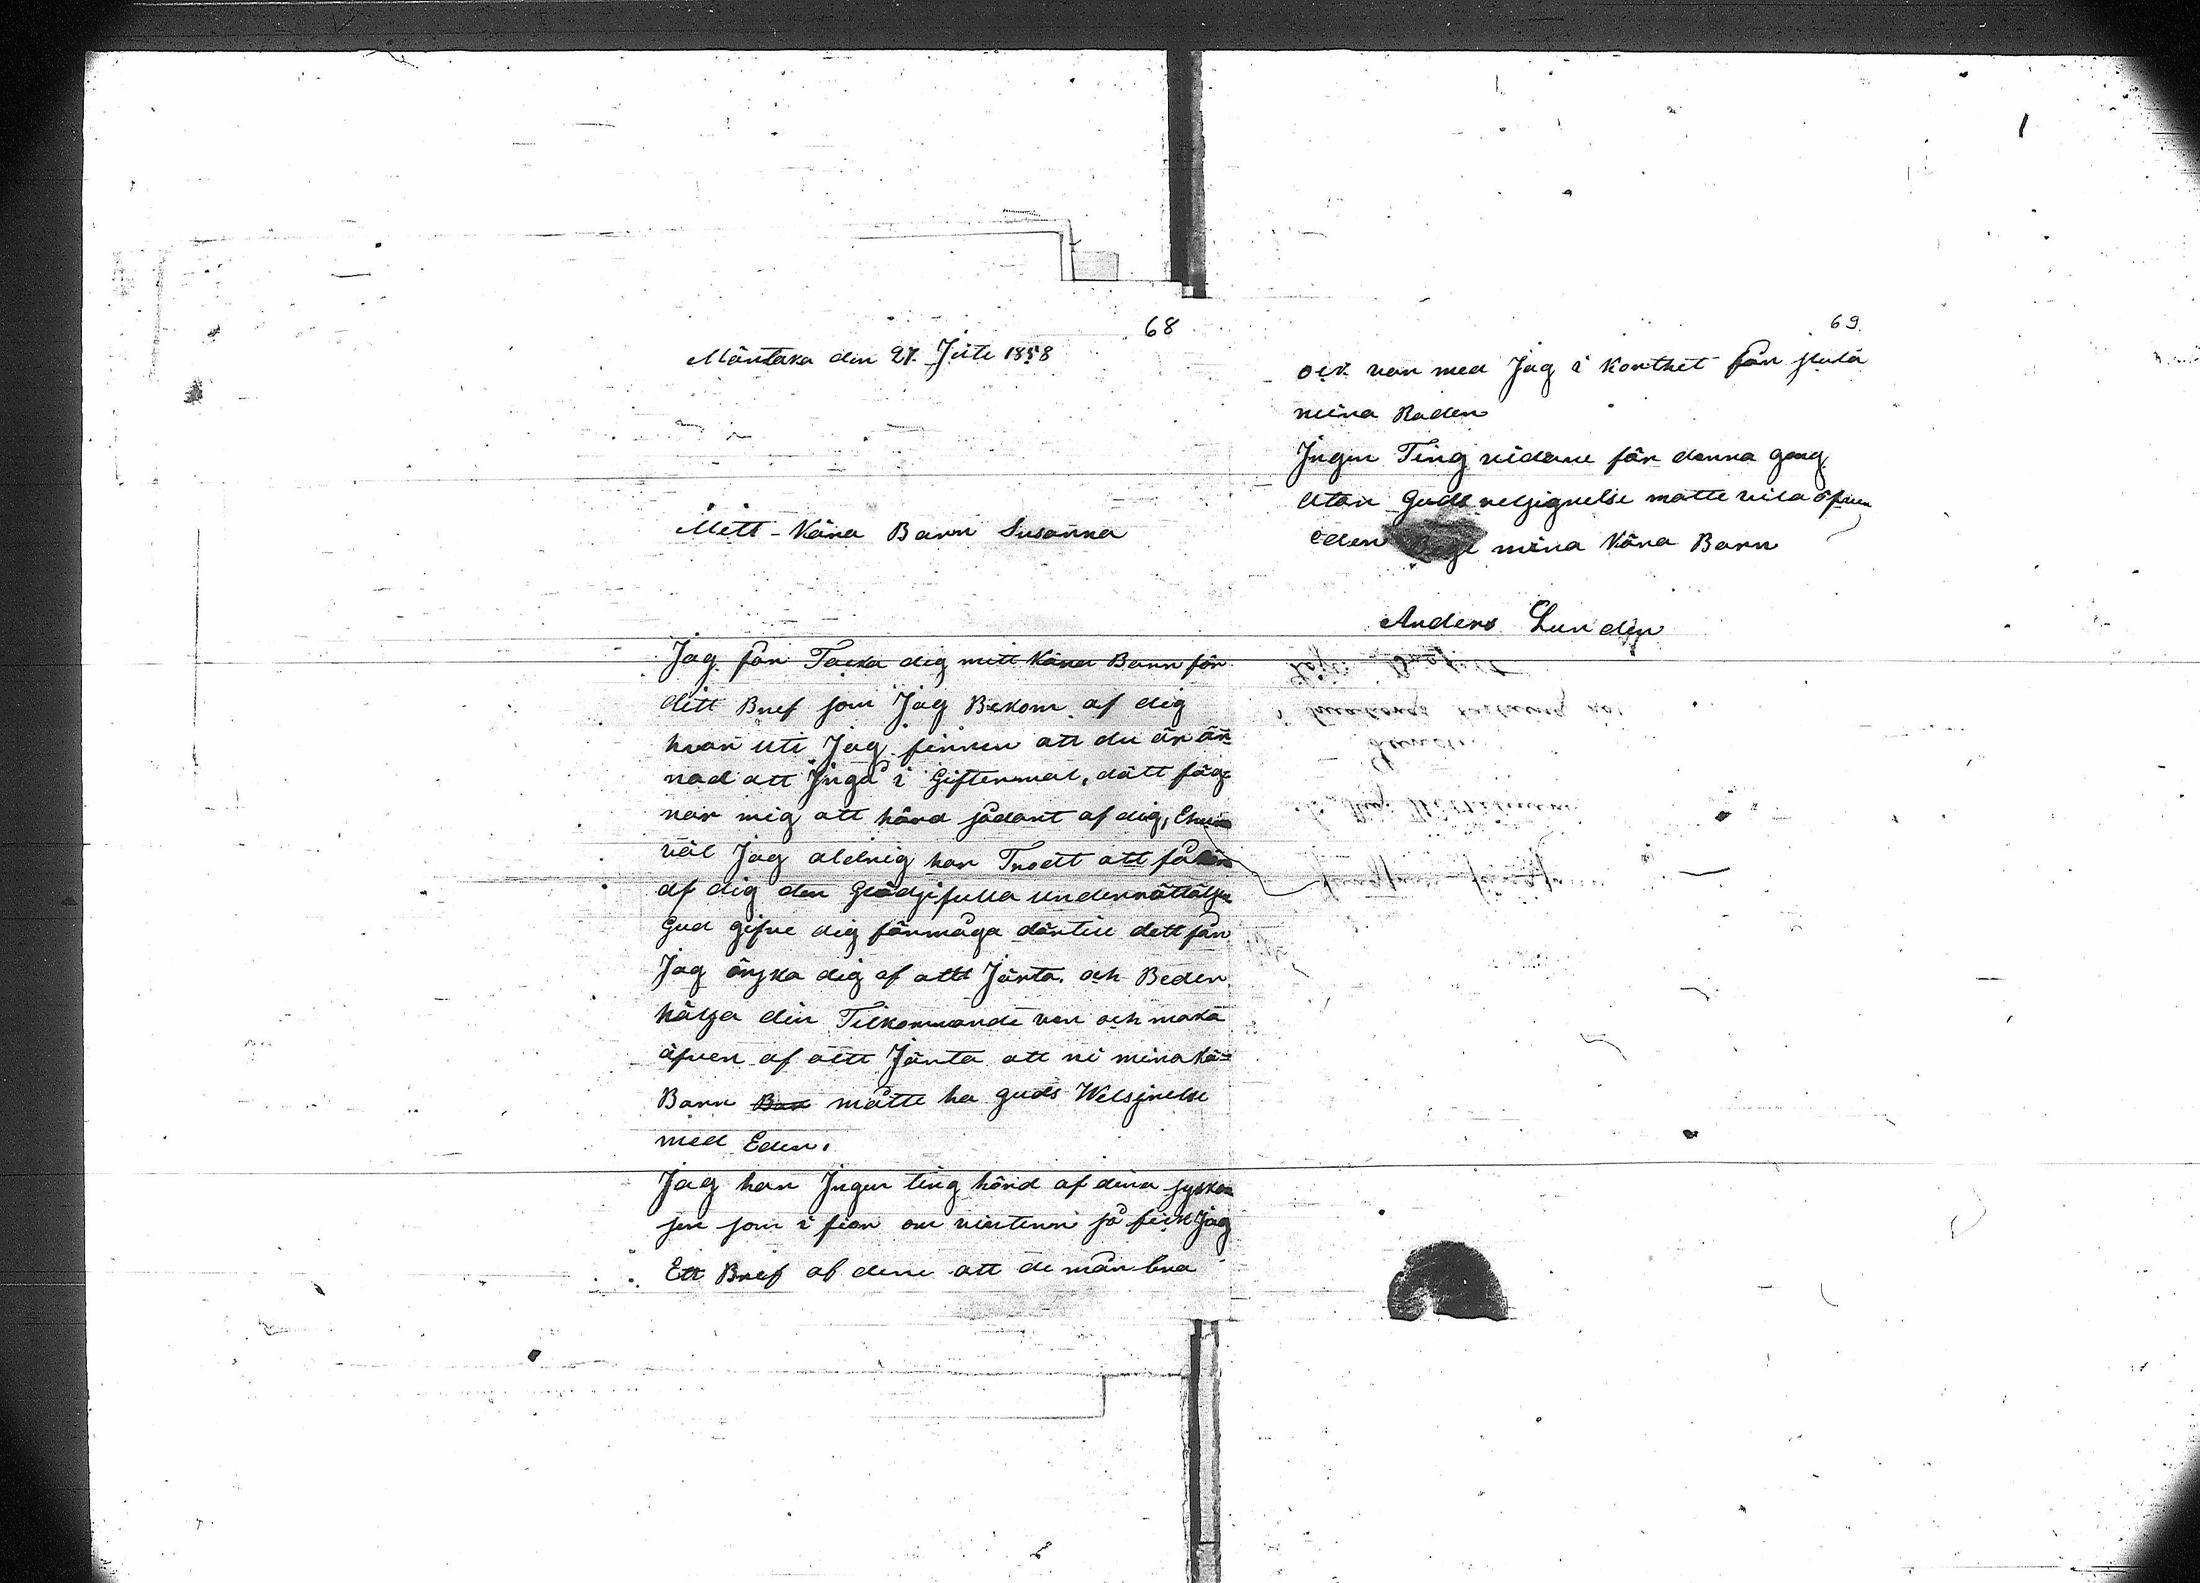 68
Mäntaka den 27. Juli 1858
Mitt Kära Barn Susanna
Jag får Tacka dig mitt Kära Barn för
ditt Bref som Jag Bekom af dig
hvar uti Jag finner att du är är-
nad att Jngå i Giftermal, dätt fäg-
nar mig att hörd sådant af dig, Ehuru
väl Jag aldrig har Trodt att få
af dig den Glädjefulla underrättälsen
Gud gifve dig förmåga därtill dett får
Jag önska dig af altt Järta och Beder
hälsa din Tilkommande ven och maka
äfven af altt Järta att ni mina kä-
Barn måtte ha guds Welsjnelse
med Eder.
Jag har Jngen ting hörd af dina sysko-
jen som i fior om vintern så feick Jag
Ett Bref af dem att de mår bra
69
ock var med Jag i Korthet får sluta
mina Rader
Jngen Ting vidare för denna gang
Utan Guds velsignelse matte vila öfver
Eder mina Kära Barn
Anders Lundin